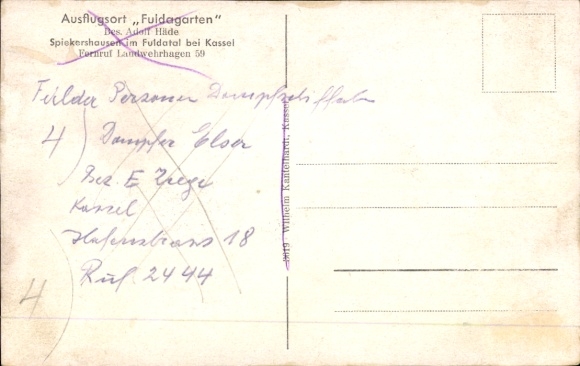 Ausflugsort „Fuldagarten"
Bes. Adolf Häde
Spiekershausen im Fuldatal bei Kassel
Fernruf Landwehrhagen 59
Personen Dampfschiffahr
4) Dampfer Elsa
Bes. E
Kassel
18
Ruf. 2444
4)
8819 Wilhelm Kantelhardt, Kassel